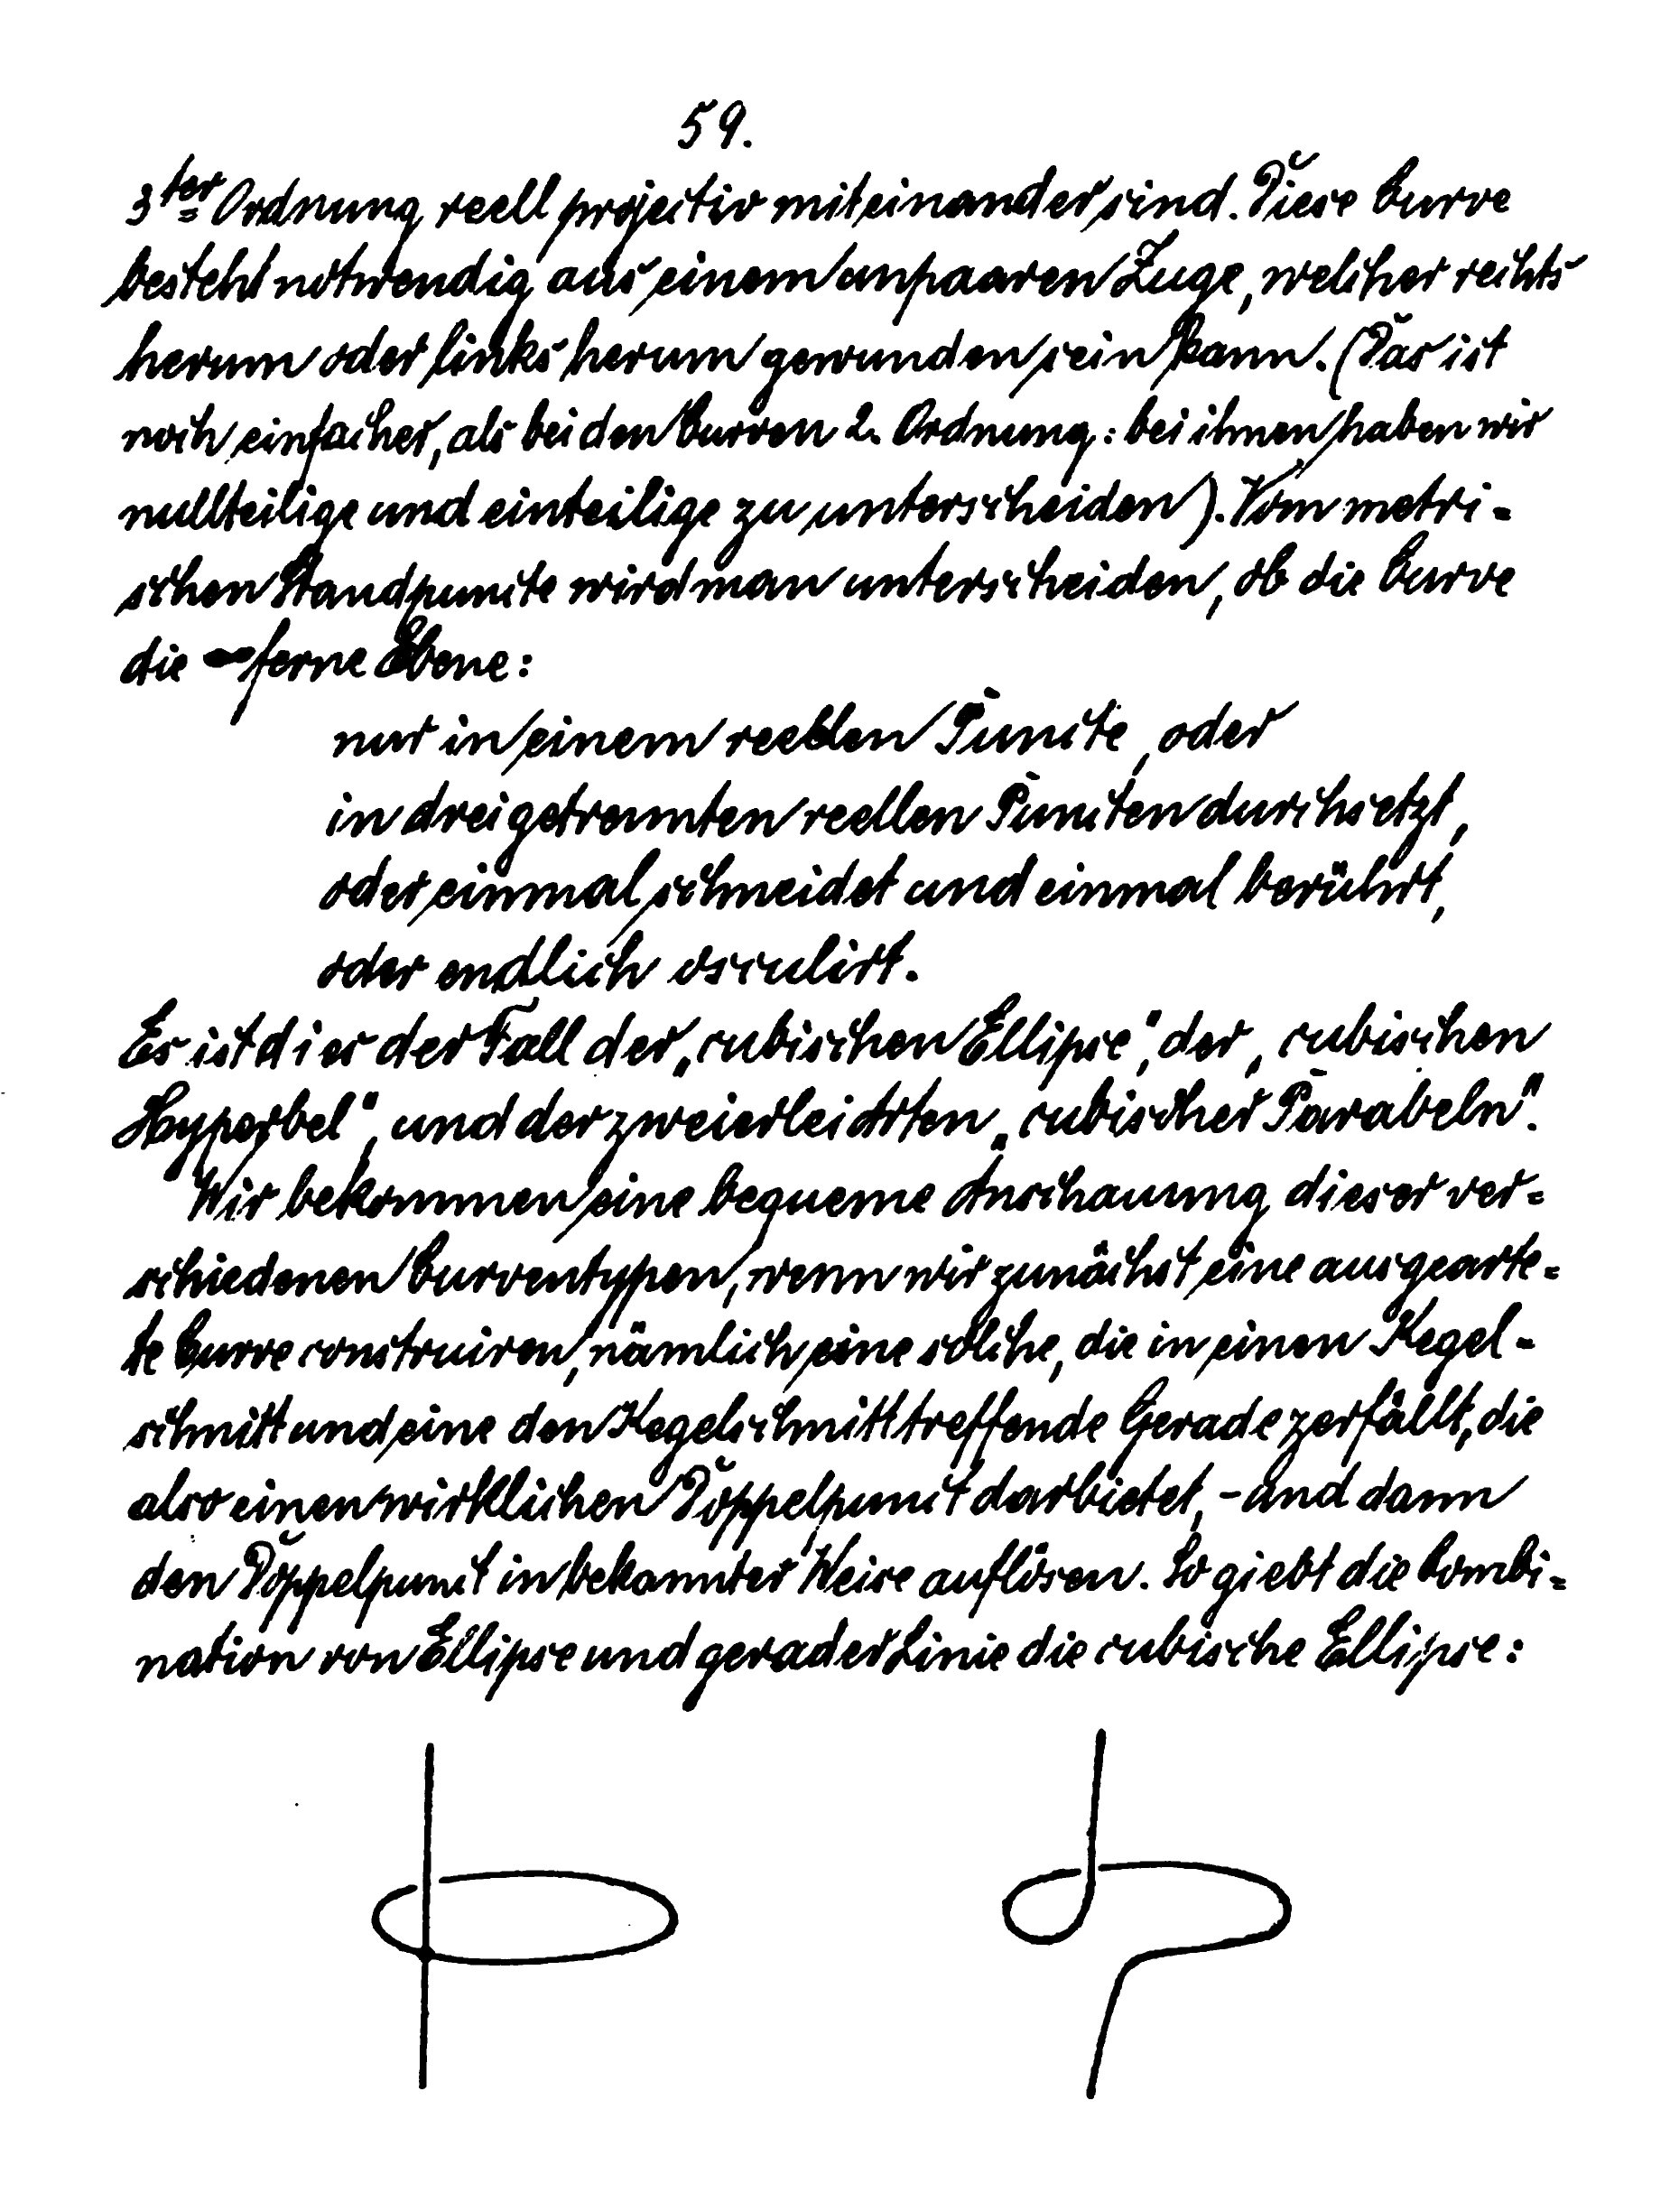 59.
3ter Ordnung reell projectiv miteinander sind. Diese Curve
besteht notwendig aus einem unpaaren Zuge, welcher rechts
herum oder links herum gewunden sein kann. (Das ist
noch einfacher, als bei den Curven 2. Ordnung: bei ihnen haben wir
nullteilige und einteilige zu unterscheiden). Vom metri-
schen Standpuncte wird man unterscheiden, ob die Curve
die ∞ ferne Ebene:
nur in einem reellen Puncte, oder
in drei getrennten reellen Puncten durchsetzt,
oder einmal schneidet und einmal berührt,
oder endlich osculirt.
Es ist dies der Fall der „cubischen Ellipse", der „cubischen
Hyperbel", und der zweierlei Arten „cubischer Parabeln".
Wir bekommen eine bequeme Anschauung dieser ver-
schiedenen Curventypen, wenn wir zunächst eine ausgearte-
te Curve construiren, nämlich eine solche, die in einen Kegel-
schnitt und eine den Kegelschnitt treffende Gerade zerfällt, die
also einen wirklichen Doppelpunct darbietet, - und dann
den Doppelpunct in bekannter Weise auflösen. So giebt die Combi-
nation von Ellipse und gerader Linie die cubische Ellipse: